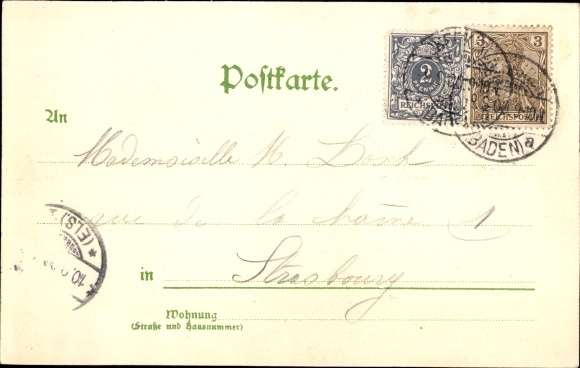 Postkarte.
2
PFENNIG
REICHSPOST
3 3
REICHSPOST
(BADEN) a
An
Mademoiselle M.
rue de la chaîne 1
* (ELS.) *
10.
in Strasbourg
Wohnung
(Straße und Hausnummer)